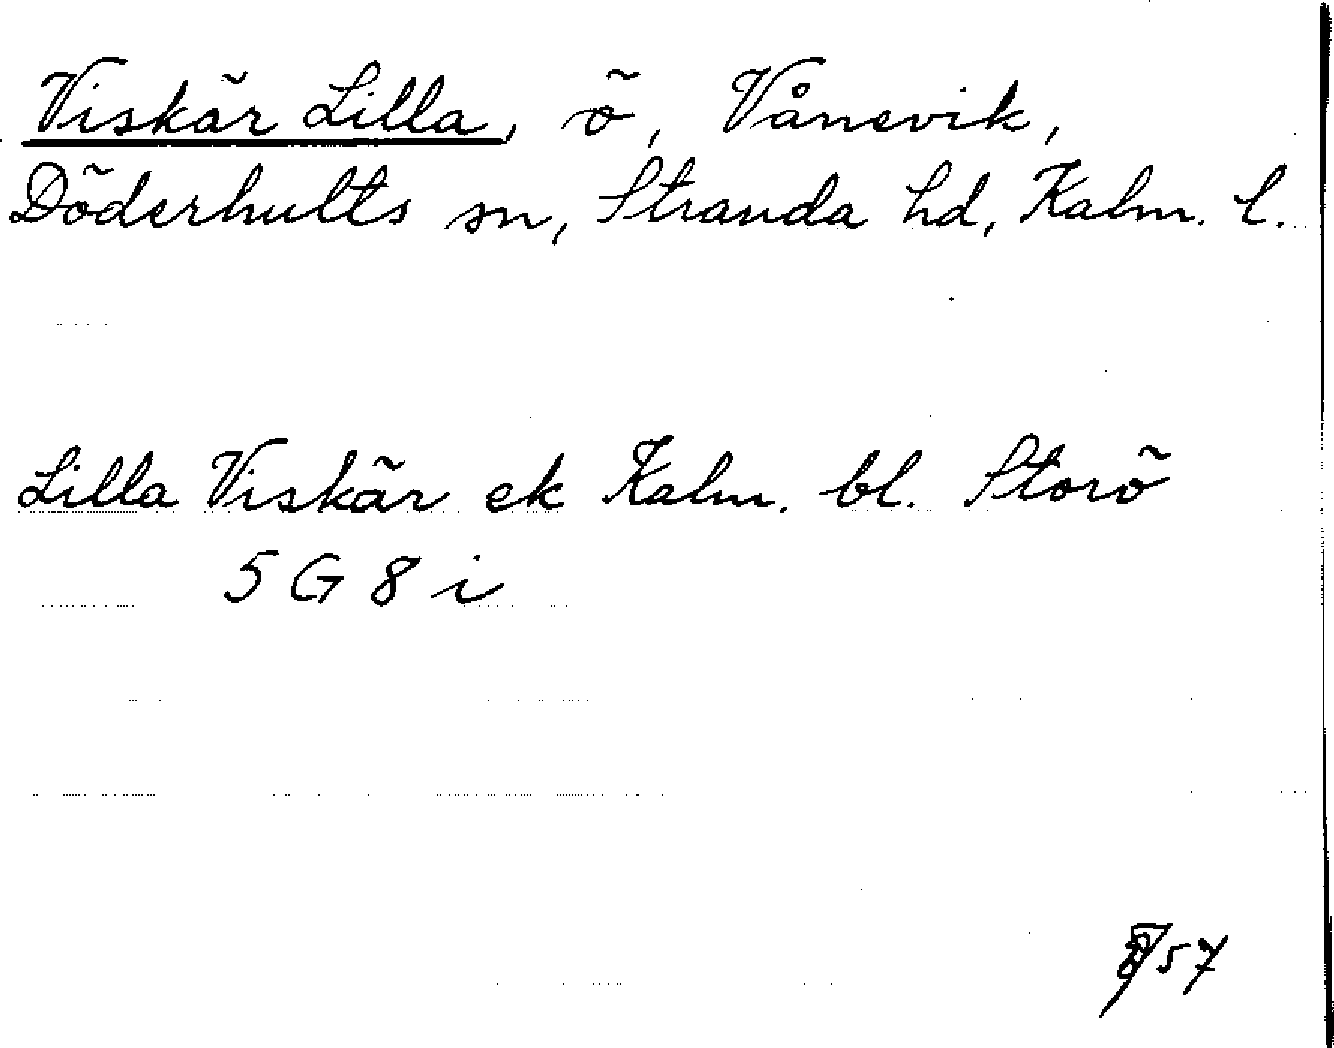 Viskär Lilla, ö, Vånevik,
Döderhults sn, Stranda hd, Kalm. l.
Lilla Viskär ek Kalm. bl. Storö
5 G 8 i
57